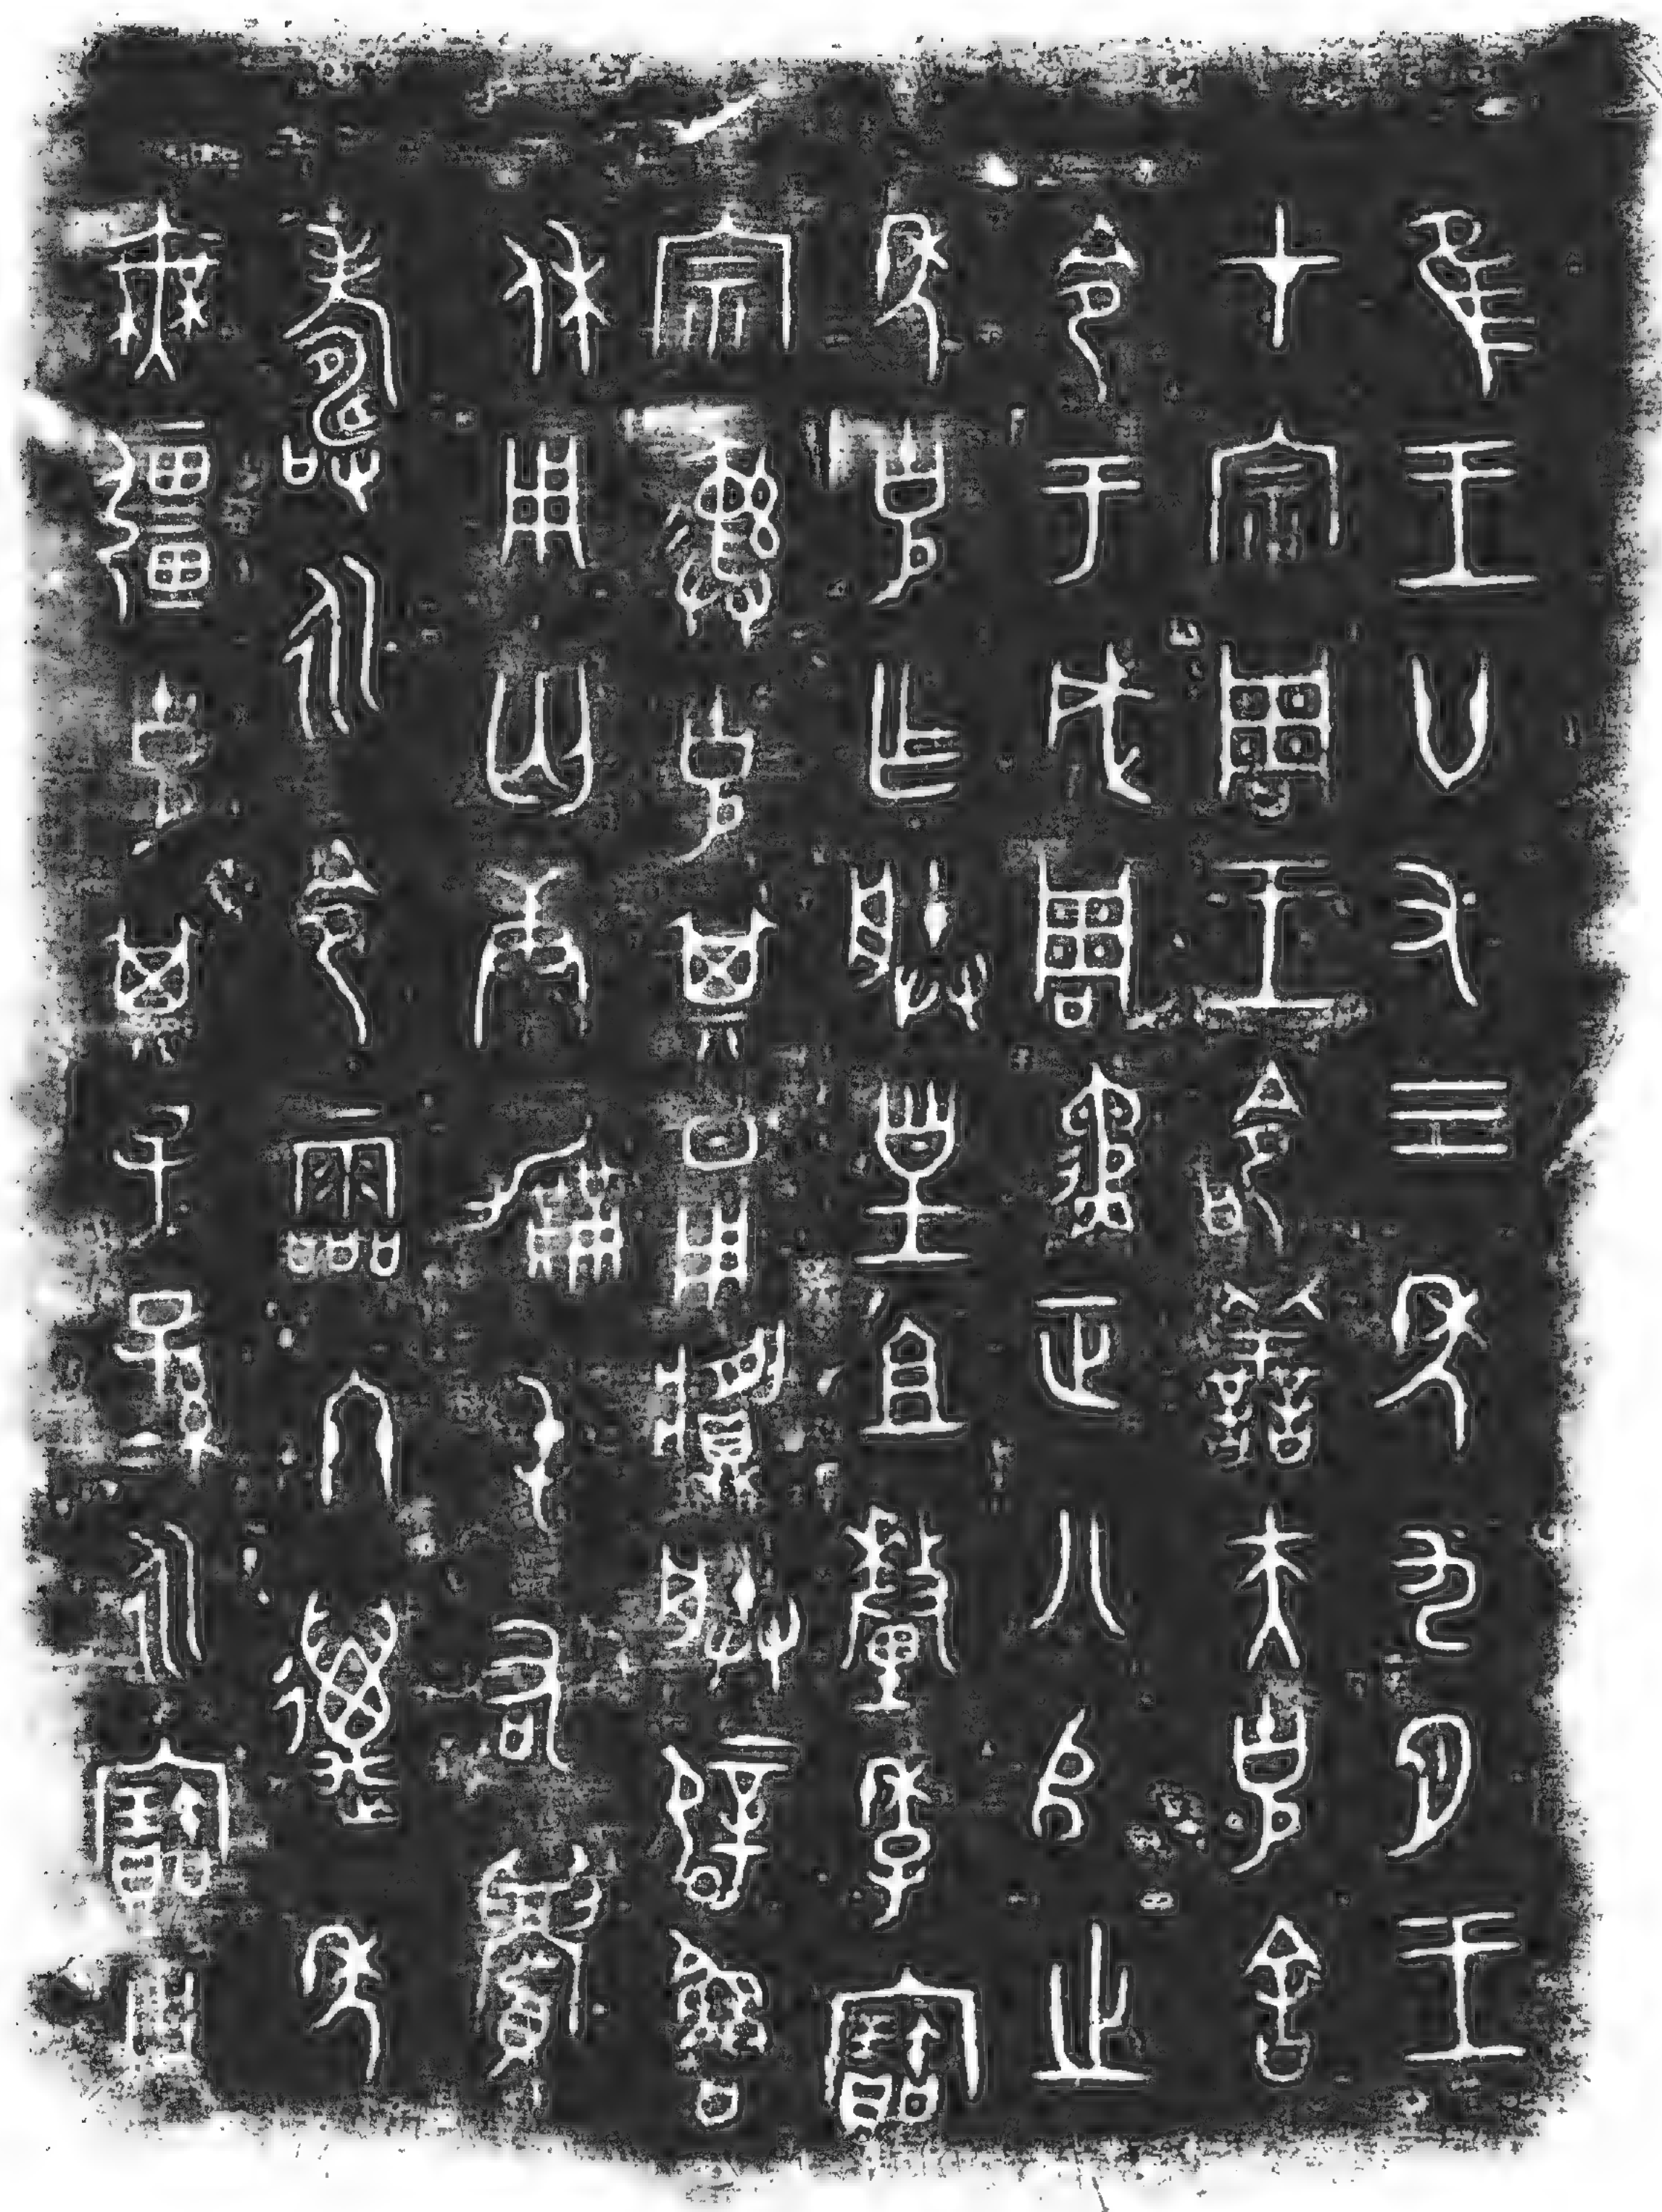 隹王廿又三年九月王
才宗周王命善夫克舍
令于成周遹正八𠂤之
年克乍朕皇且釐季寶
宗彝克其日用𩰫朕辟魯
休用匄康勵屯右眉
壽永令霝冬邁年
無疆克其子=孫=永寶用